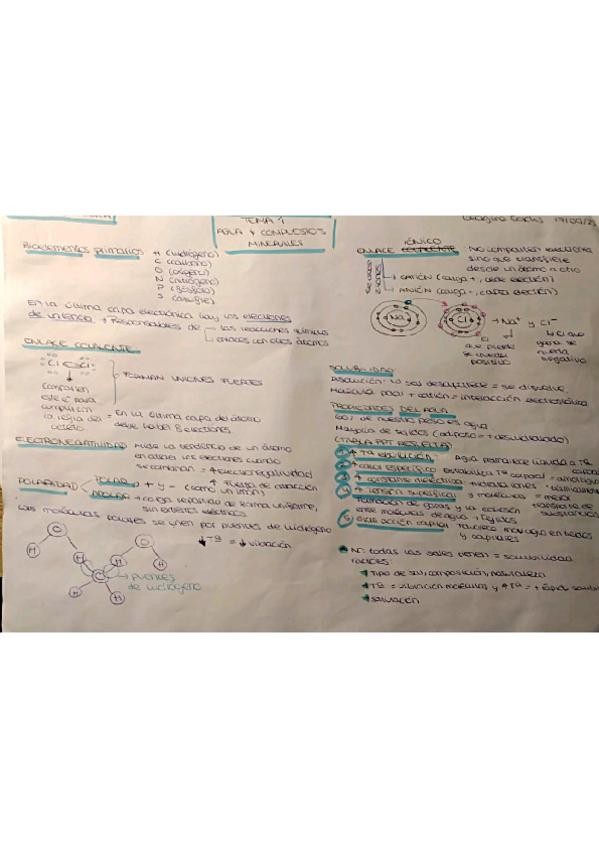 TEMA 1
AGUA Y COMPUESTOS
MINERALES
Bioelementos primarios: H (hidrógeno)
C (carbono)
O (oxígeno)
N (nitrógeno)
P (fósforo)
S (azufre)
En la última capa electrónica hay los electrones
de valencia → Responsables de
las reacciones químicas
enlaces con otros átomos
ENLACE COVALENTE
Cl Cl
FORMAN UNIONES FUERTES
Comparten
este e⁻ para
cumplir con
la regla del
octeto
= En la última capa del átomo
debe haber 8 electrones
ELECTRONEGATIVIDAD: Mide la tendencia de un átomo
en atraer los electrones cuando
se combinan = + electronegatividad
↑ fuerza de atracción
POLARIDAD
POLAR → + y - (como un imán)
APOLAR → carga repartida de forma uniforme,
sin exceso eléctrico
Las moléculas polares se unen por puentes de hidrógeno
↓ Tª = ↓ vibración
O
O
H
H
H
H
O
H
H
puentes
de hidrógeno
IÓNICO
ENLACE COVALENTE: No comparten electrones
sino que transfiere
desde un átomo a otro
→ CATIÓN (carga +, cede electrón)
→ ANIÓN (carga -, capta electrón)
Na
Cl
→ Na⁺ y Cl⁻
el que
que pierde
se queda
positivo
gana se
queda
negativo
SOLUBILIDAD
Disolución: la sal desaparece = se disuelve
Molécula polar + catión = interacción electrostática
PROPIEDADES DEL AGUA
60% de nuestro peso es agua
Mayoría de tejidos (adiposo = + deshidratado)
(TABLA PPT RESUELTA)
↑ Tª ebullición: Agua permanece líquida a Tª
corporal
↑ calor específico: estabiliza Tª corporal
↑ constante dieléctrica: hidrata iones
↑ tensión superficial y moléculas = mejor
formación de gotas y la cohesión
entre moléculas de agua y tejidos
transporte de
sustancias
acción capilar: favorece mov. agua en tejidos
y capilares
No todas las sales tienen = solubilidad
Factores:
Tipo de sal, composición, naturaleza
Tª = vibración moléculas y ↑ Tª = + rápido
saturación